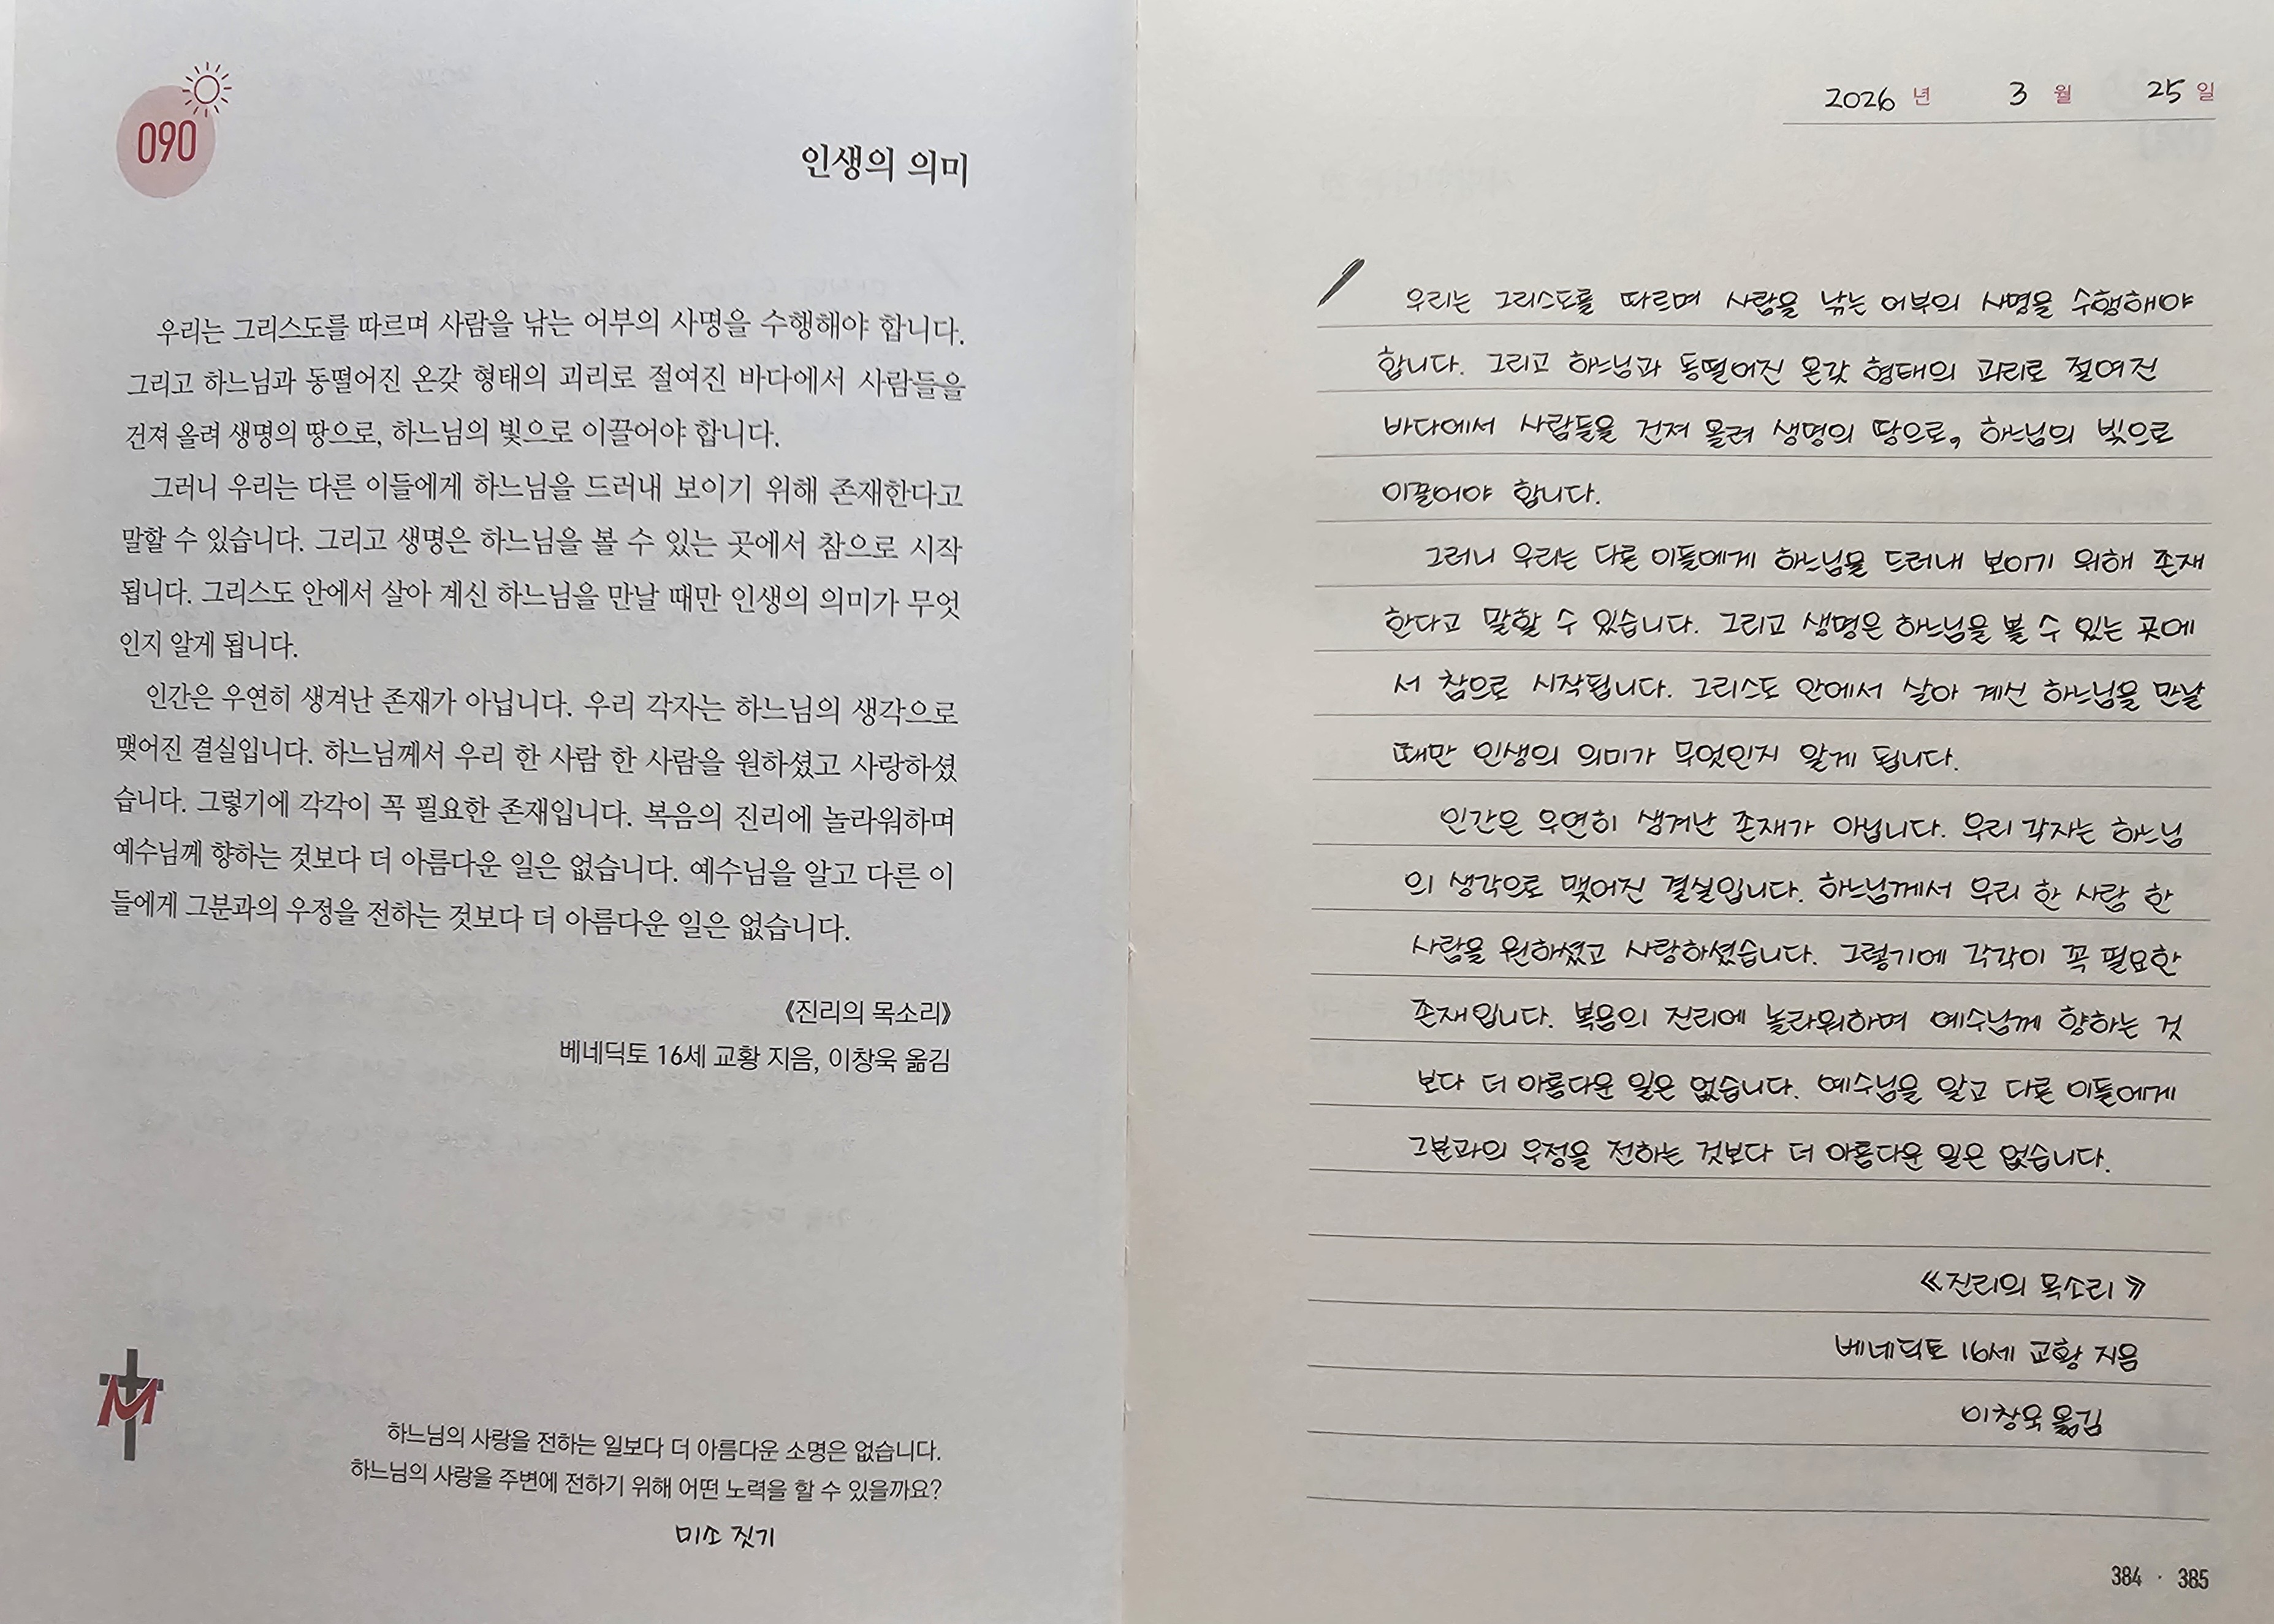 090
인생의 의미
우리는 그리스도를 따르며 사람을 낚는 어부의 사명을 수행해야 합니다.
그리고 하느님과 동떨어진 온갖 형태의 괴리로 절여진 바다에서 사람들을
건져 올려 생명의 땅으로, 하느님의 빛으로 이끌어야 합니다.
그러니 우리는 다른 이들에게 하느님을 드러내 보이기 위해 존재한다고
말할 수 있습니다. 그리고 생명은 하느님을 볼 수 있는 곳에서 참으로 시작
됩니다. 그리스도 안에서 살아 계신 하느님을 만날 때만 인생의 의미가 무엇
인지 알게 됩니다.
인간은 우연히 생겨난 존재가 아닙니다. 우리 각자는 하느님의 생각으로
맺어진 결실입니다. 하느님께서 우리 한 사람 한 사람을 원하셨고 사랑하셨
습니다. 그렇기에 각각이 꼭 필요한 존재입니다. 복음의 진리에 놀라워하며
예수님께 향하는 것보다 더 아름다운 일은 없습니다. 예수님을 알고 다른 이
들에게 그분과의 우정을 전하는 것보다 더 아름다운 일은 없습니다.
《진리의 목소리》
베네딕토 16세 교황 지음, 이창욱 옮김
M
하느님의 사랑을 전하는 일보다 더 아름다운 소명은 없습니다.
하느님의 사랑을 주변에 전하기 위해 어떤 노력을 할 수 있을까요?
미소 짓기
2026 년 3 월 25 일
우리는 그리스도를 따르며 사람을 낚는 어부의 사명을 수행해야
합니다. 그리고 하느님과 동떨어진 온갖 형태의 괴리로 절여진
바다에서 사람들을 건져 올려 생명의 땅으로, 하느님의 빛으로
이끌어야 합니다.
그러니 우리는 다른 이들에게 하느님을 드러내 보이기 위해 존재
한다고 말할 수 있습니다. 그리고 생명은 하느님을 볼 수 있는 곳에
서 참으로 시작됩니다. 그리스도 안에서 살아 계신 하느님을 만날
때만 인생의 의미가 무엇인지 알게 됩니다.
인간은 우연히 생겨난 존재가 아닙니다. 우리 각자는 하느님
의 생각으로 맺어진 결실입니다. 하느님께서 우리 한 사람 한
사람을 원하셨고 사랑하셨습니다. 그렇기에 각각이 꼭 필요한
존재입니다. 복음의 진리에 놀라워하며 예수님께 향하는 것
보다 더 아름다운 일은 없습니다. 예수님을 알고 다른 이들에게
그분과의 우정을 전하는 것보다 더 아름다운 일은 없습니다.
《진리의 목소리》
베네딕토 16세 교황 지음
이창욱 옮김
384 · 385